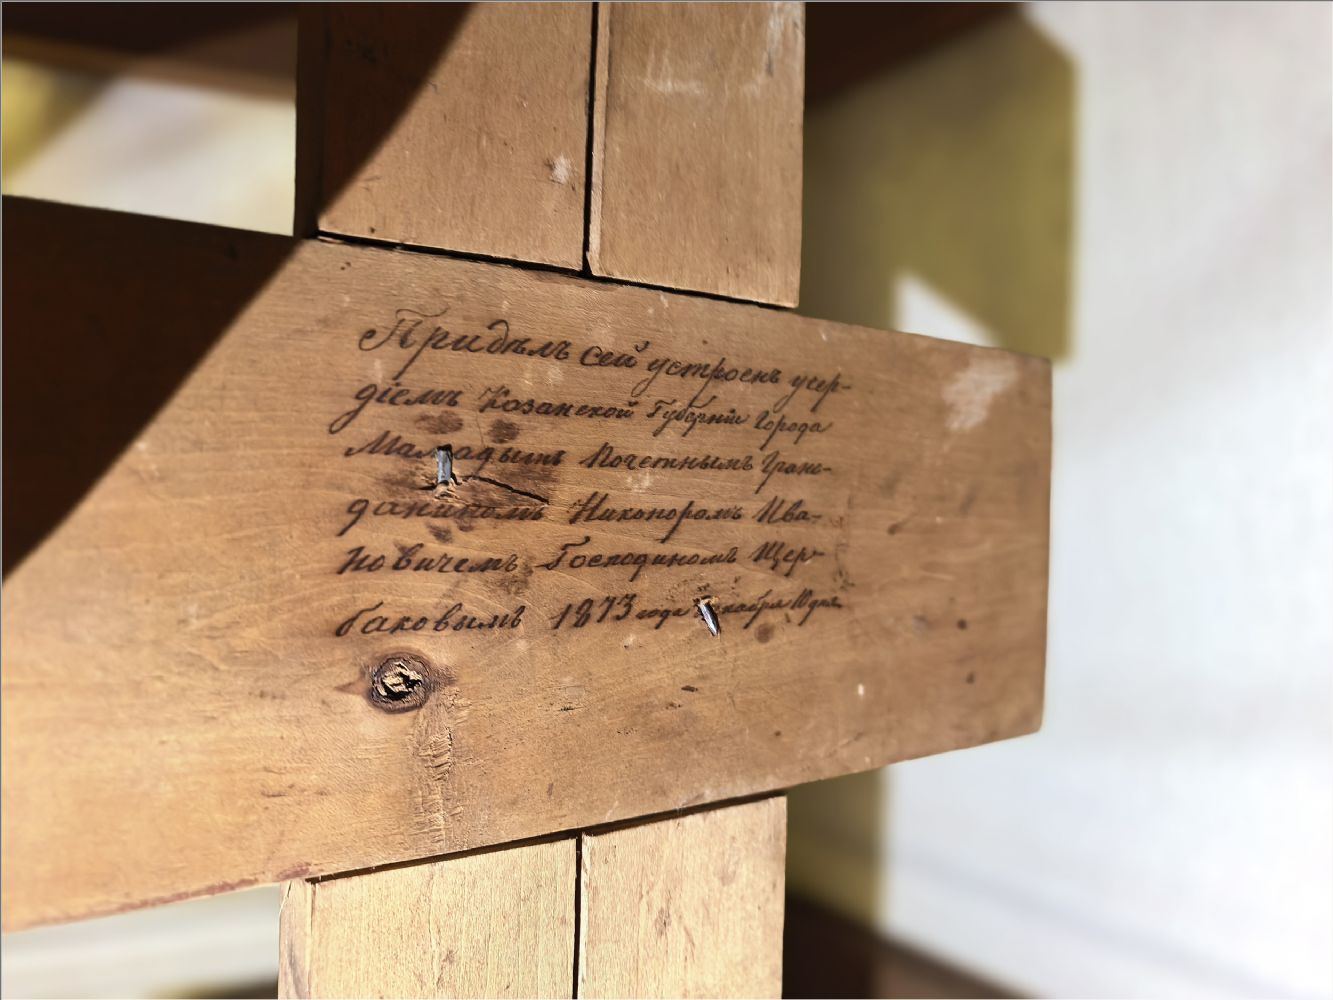 Придѣлъ сей устроенъ усер-
діемъ Казанской Губерніи Города
Мамадышъ Почетнымъ Граж-
даниномъ Никоноромъ Ива-
новичемъ Господиномъ Щер-
баковымъ 1873 года Декабря 10 дня